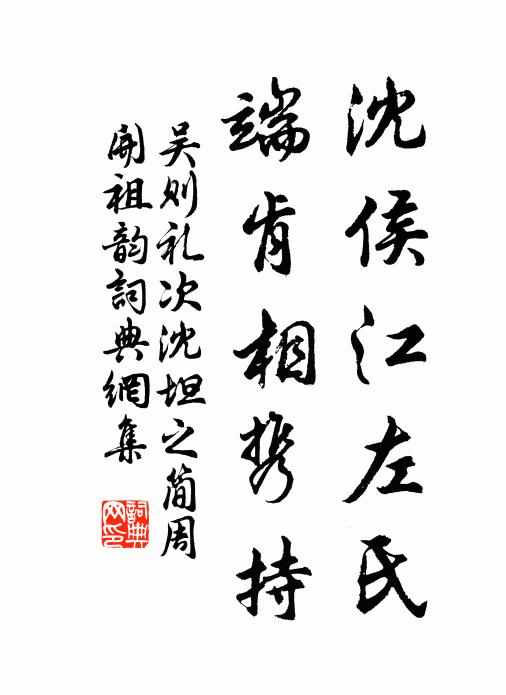 沈侯江左氏
端肯相携持
吴则礼次沈坦之简周
开祖韵詞典網集
詞典网印